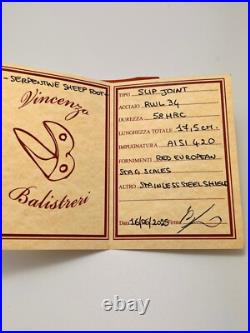 - SERPENTINE SHEEP FOOT -
Vincenzo
Balistreri
TIPO SLIP JOINT
ACCIAIO RWL 34
DUREZZA 58 HRC
LUNGHEZZA TOTALE 17,5 cm.
IMPUGNATURA AISI 420
FORNIMENTI RED EUROPEAN
STAG SCALES
ALTRO STAINLESS STEEL SHIELD
Data 16/06/2025 Firma